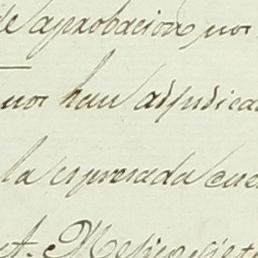 de aprobacion nos
nos han adjudica
la espresada cue
Mexico siete